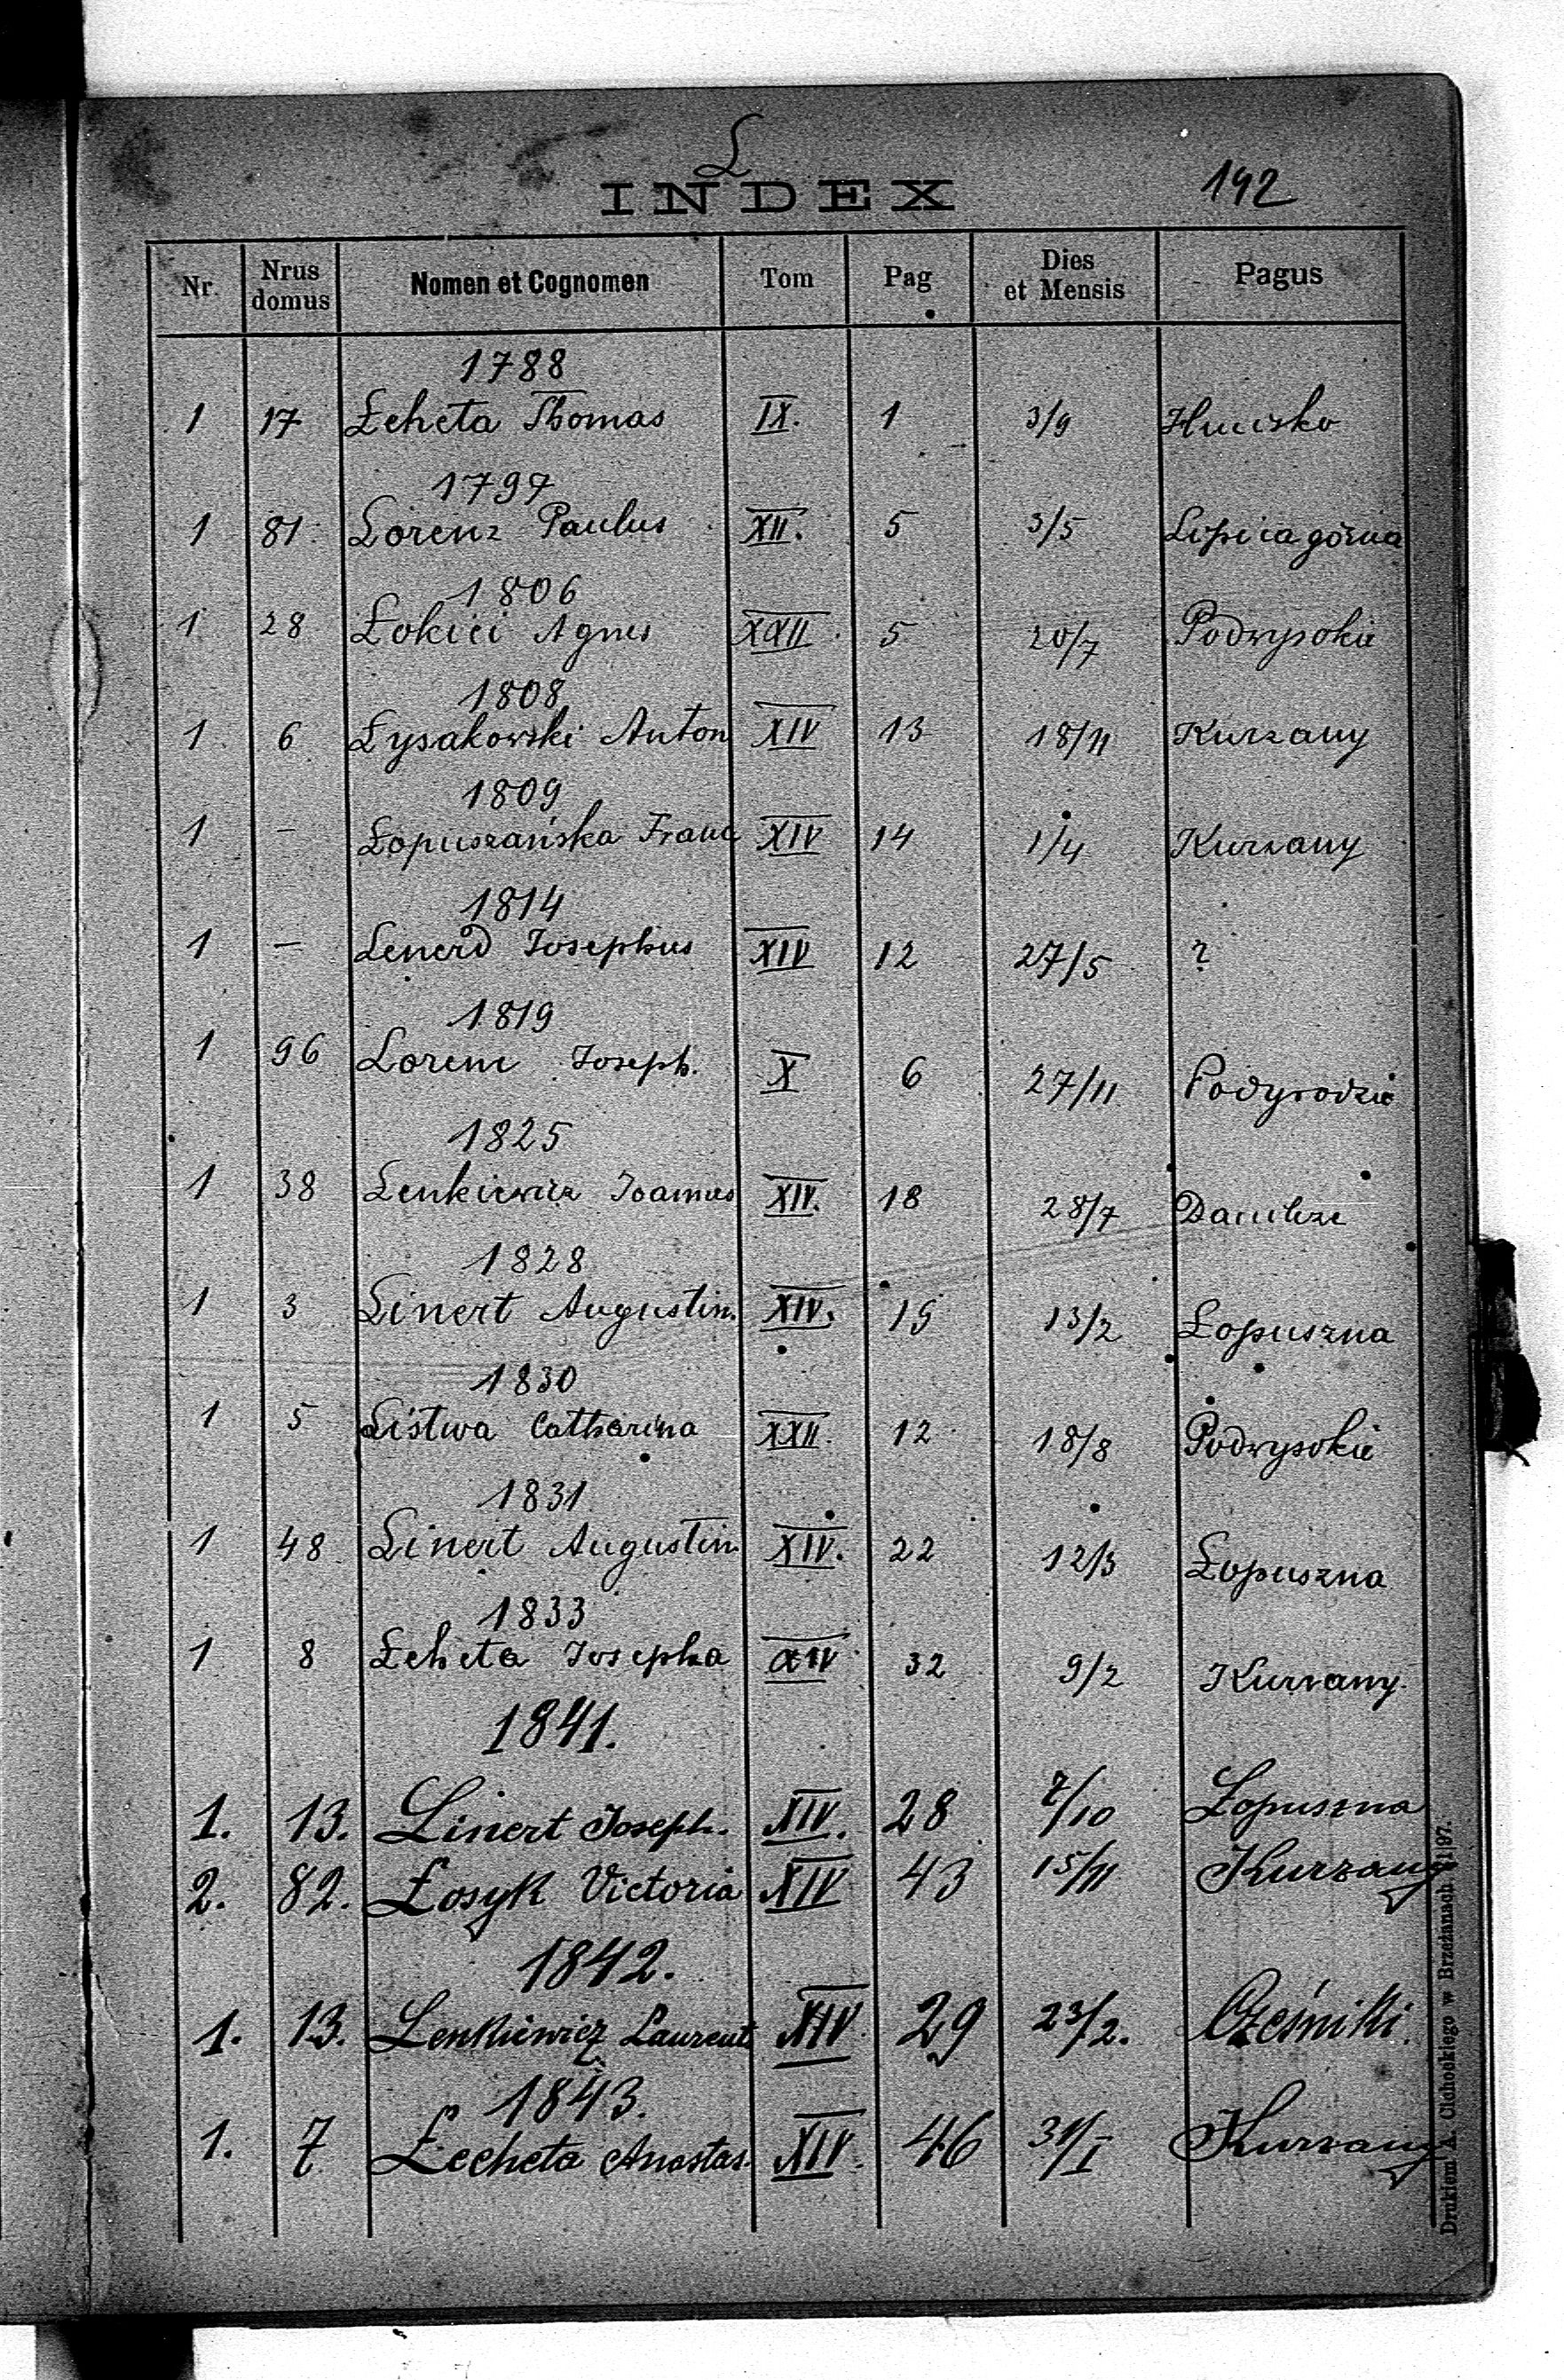 L
INDEX
142
Nr. Nrus domus Nomen et Cognomen Tom Pag Dies et Mensis Pagus
1788
1 17 Łeheta Thomas IX. 1 3/9
1797
1 81 Lorenz Paulus XII. 5 3/5 Lipica górna
1806
1 28 Łokici Agnes XXII. 5 20/7 Podwysokie
1808
1 6 Łysakowski Anton XIV 13 18/11 Kurzany
1809
1 - Łopuszańska Franc XIV 14 1/4 Kurzany
1814
1 - Lenerd Josephus XIV 12 27/5 ?
1819
1 96 Lorenc Joseph. X 6 27/11 Podgrodzie
1825
1 38 Lenkiewicz Joannes XIV. 18 28/7
1828
1 3 Linert Augustin. XIV. 19 13/2 Łopuszna
1830
1 5 Listwa Catharina XXII. 12 18/8 Podwysokie
1831
1 48 Linert Augustin. XIV. 22 12/3 Łopuszna
1833
1 8 Łeheta Josepha XIV 32 9/2 Kurzany.
1841.
1. 13. Linert Joseph. XIV. 28 7/10 Łopuszna
2. 82. Łosyk Victoria XIV 43 15/11 Kurzany
1842.
1. 13. Lenkiewicz Laurent XIV. 29 23/2. Cześniki.
1843.
1. 7 Łecheta Anastas. XIV. 46 31/I Kurzany
Drukiem A. Cichockiego w Brzeżanach 97.